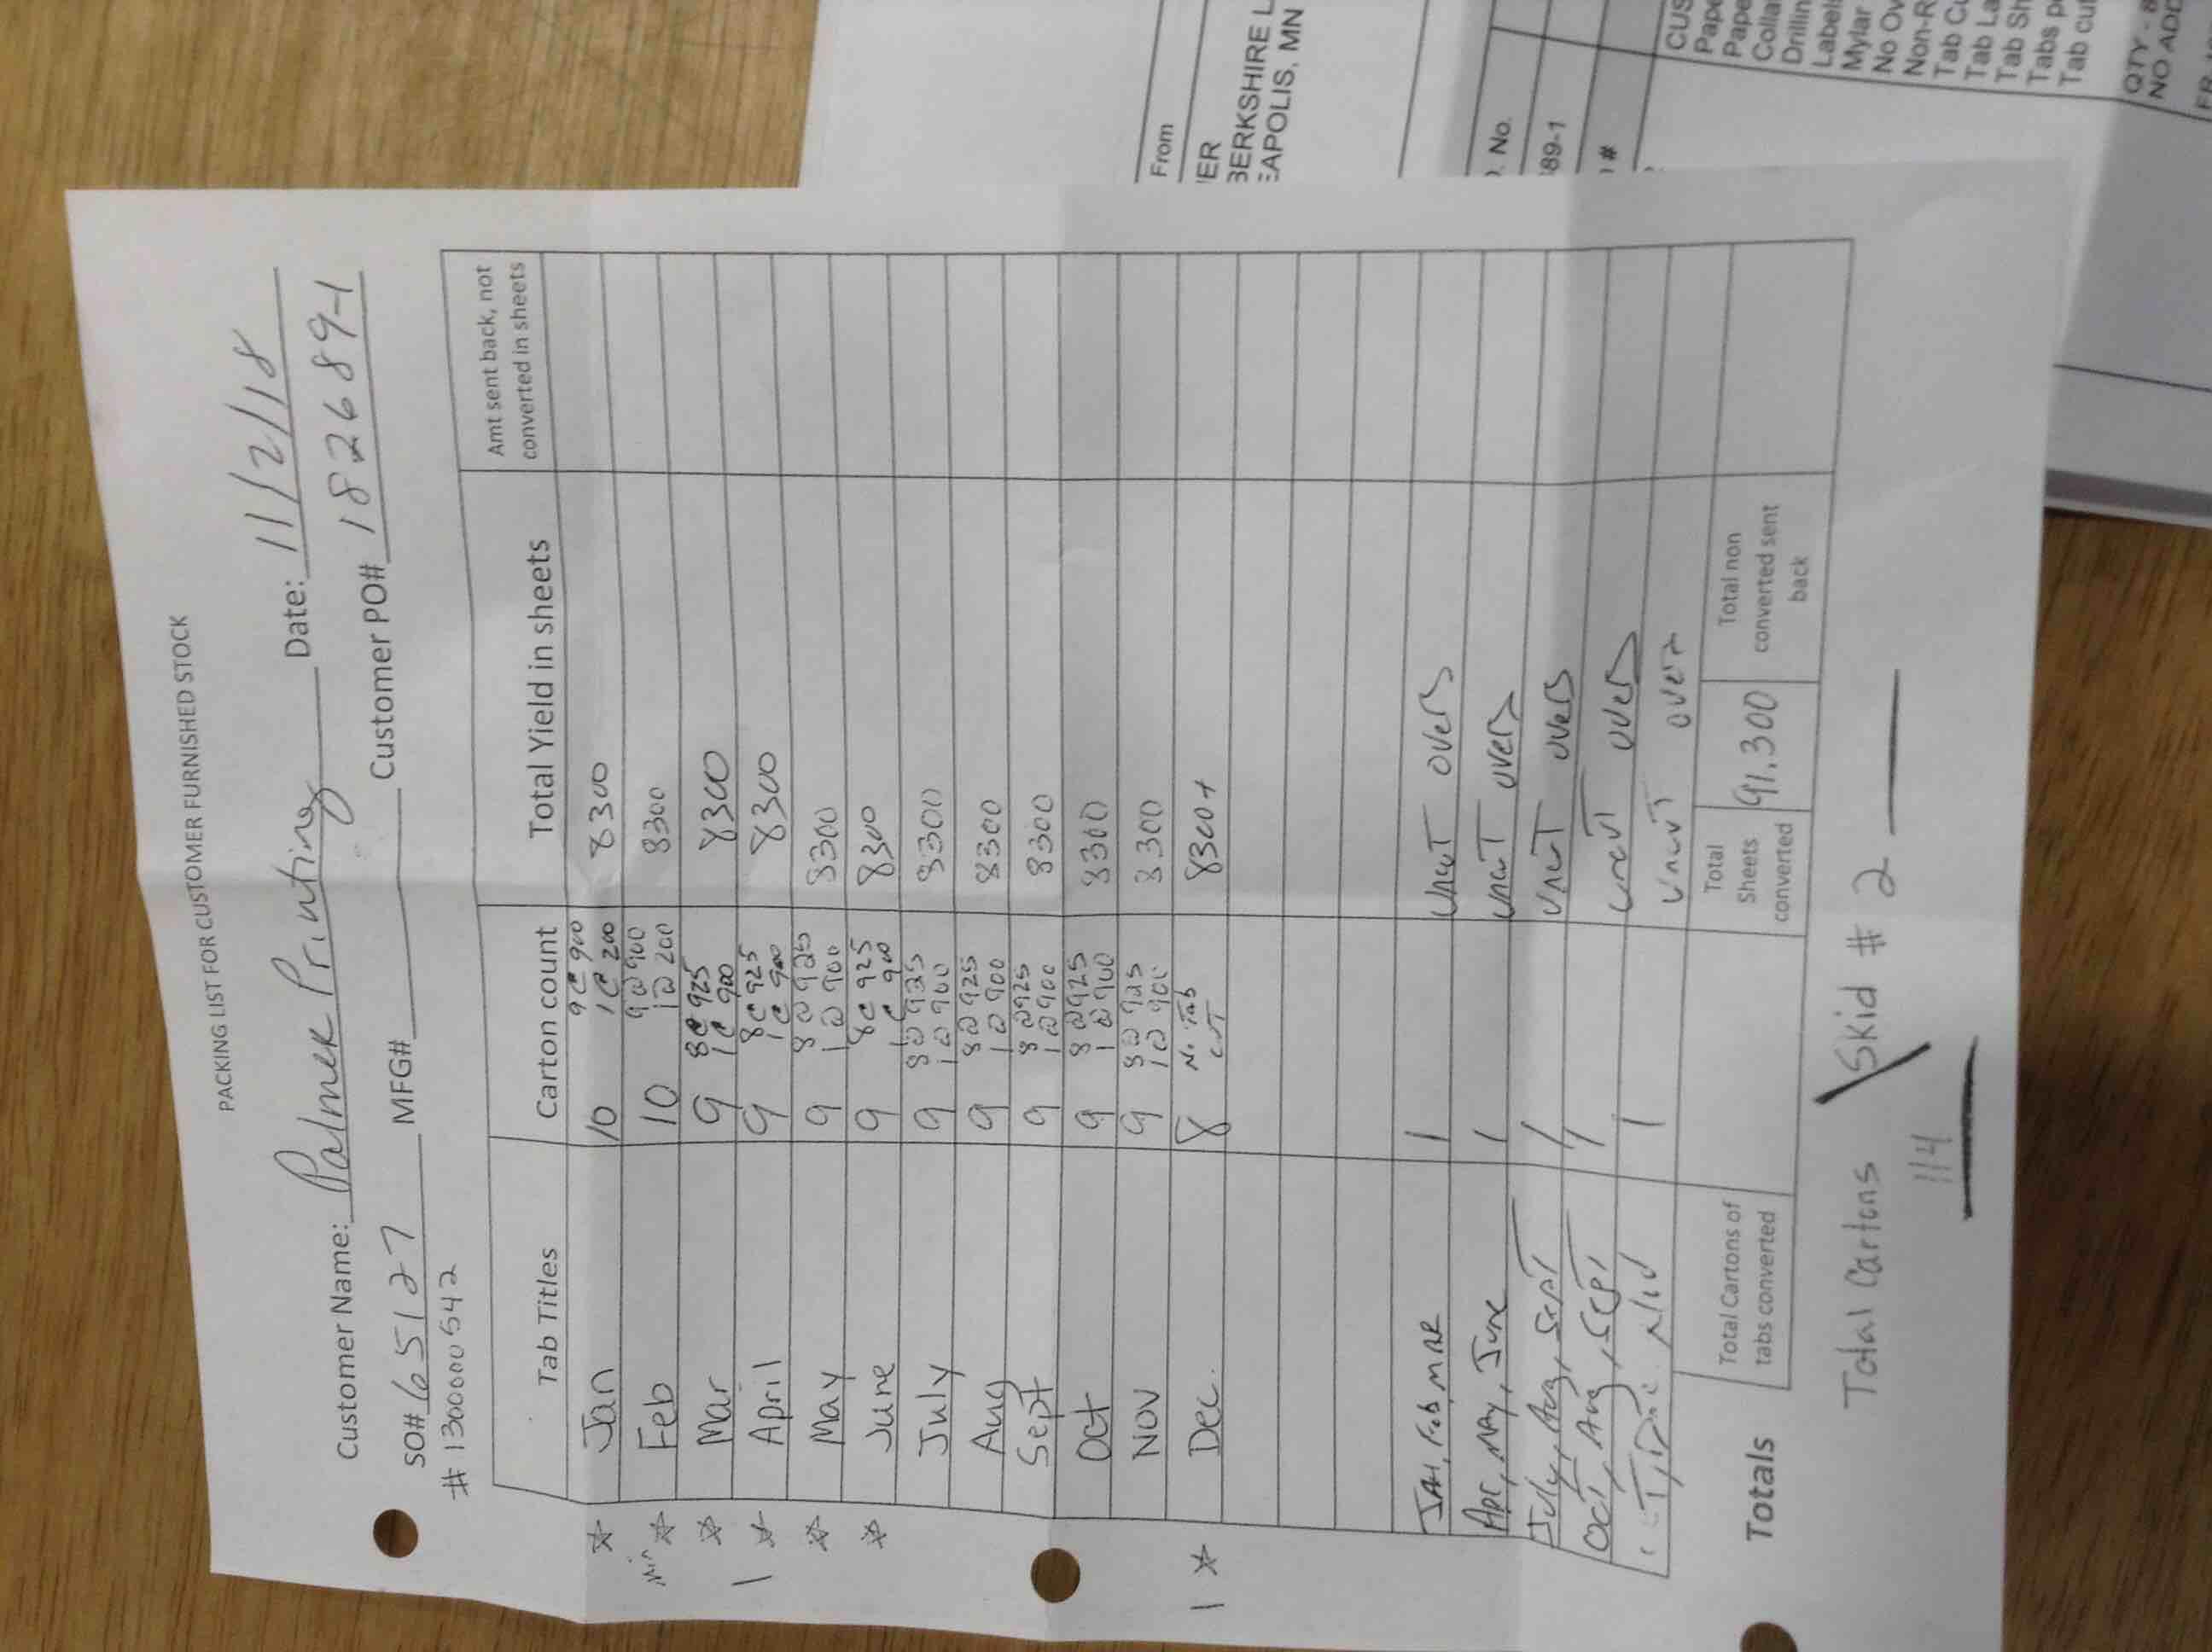 PACKING LIST FOR CUSTOMER FURNISHED STOCK
Customer Name: Palmer Printing Date: 11/2/18
SO# 165127 MFG# Customer PO# 182689-1
# 1300000542
Tab Titles Carton count Total Yield in sheets Amt sent back, not converted in sheets
☆ Jan 10 9@900 1@200 8300
☆ Feb 10 9@900 1@200 8300
☆ Mar 9 8@925 1@900 8300
1 ☆ April 9 8@925 1@900 8300
☆ May 9 8@925 1@900 8300
☆ June 9 8@925 1@900 8300
July 9 8@925 1@900 8300
Aug 9 8@925 1@900 8300
Sept 9 8@925 1@900 8300
Oct 9 8@925 1@900 8300
Nov 9 8@925 1@900 8300
1 ☆ Dec. 8 No Tab cut 8300+
JAN, Feb, MAR 1 uncut overs
Apr, MAy, June 1 uncut overs
July, Aug, Sept 1 uncut overs
Oct, Aug, SEPT 1 uncut overs
1 uncut overs
Totals Total Cartons of tabs converted Total Sheets converted 91,300 Total non converted sent back
Total Cartons / Skid # 2
114
From
ER
BERKSHIRE L
EAPOLIS, MN
. No.
89-1
#
CUS
Pape
Pape
Colla
Drillin
Labels
Mylar
No Ov
Non-R
Tab Cu
Tab La
Tab Sh
Tabs p
Tab cu
QTY - 8
NO ADD